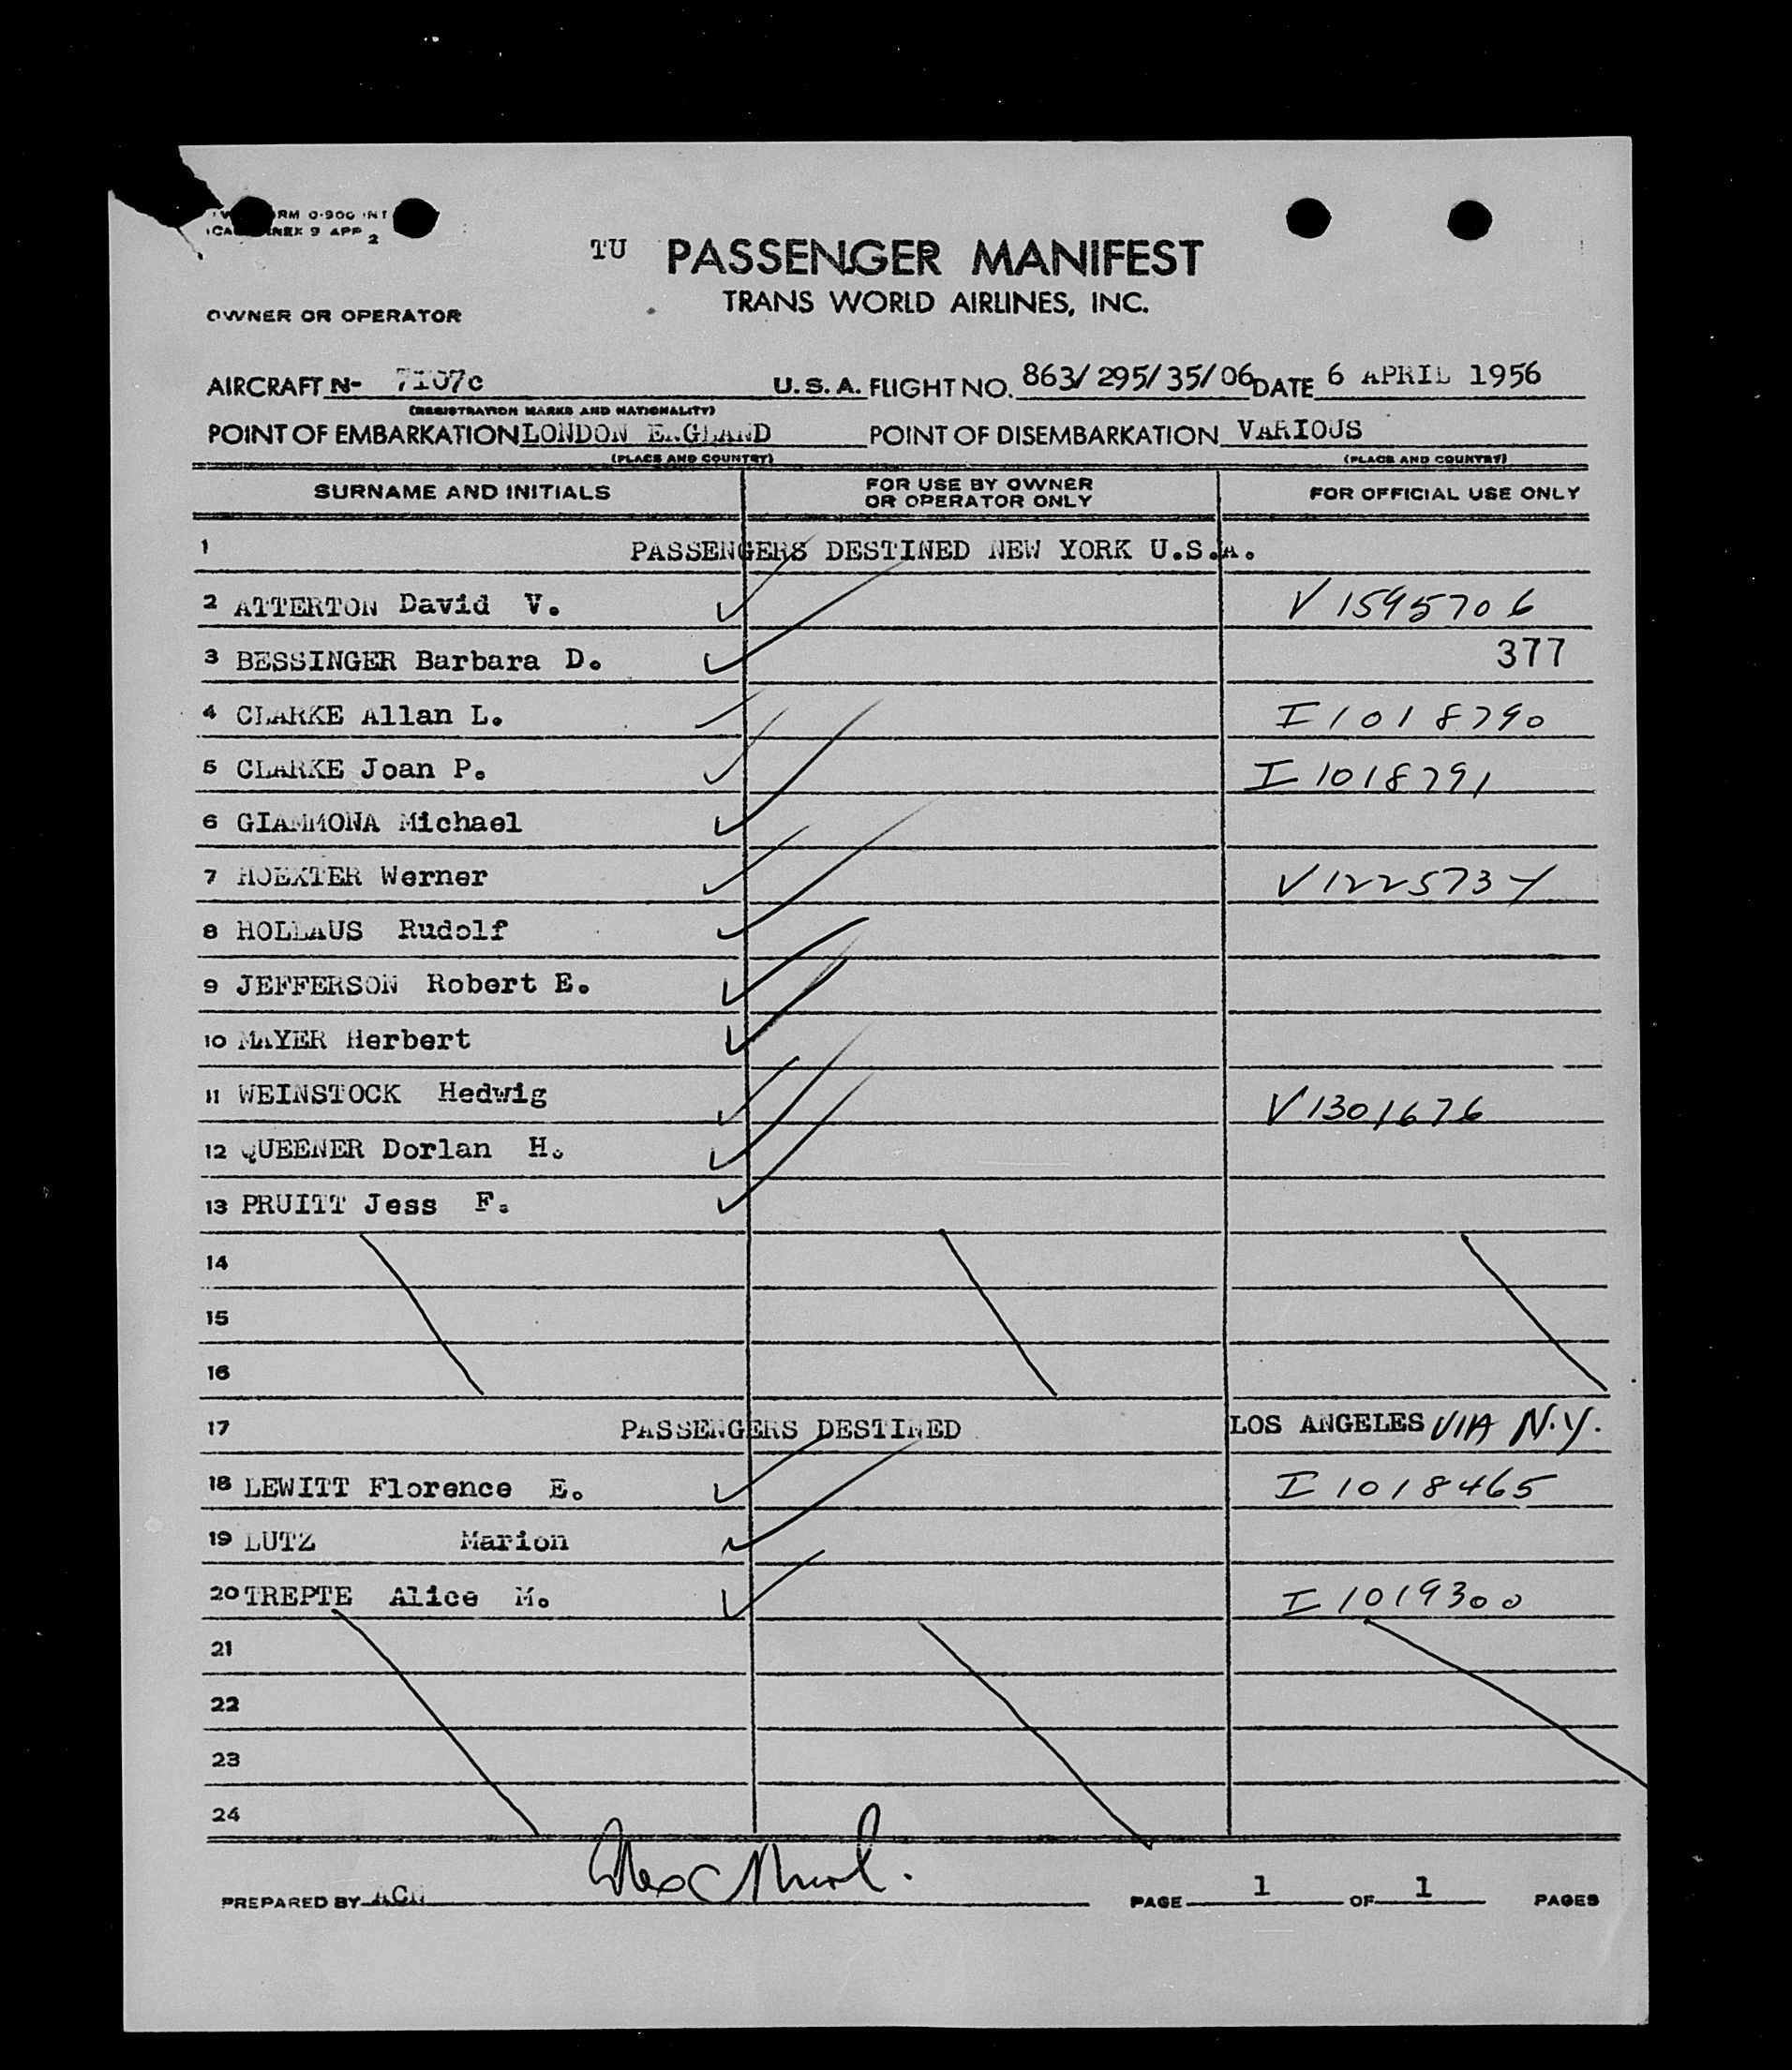 RM 0-900 INT
NEX 9 APP 2
TU PASSENGER MANIFEST
TRANS WORLD AIRLINES, INC.
OWNER OR OPERATOR
AIRCRAFT N- 7107c U.S.A. FLIGHT NO. 863/295/35/06 DATE 6 APRIL 1956
(REGISTRATION MARKS AND NATIONALITY)
POINT OF EMBARKATION LONDON ENGLAND POINT OF DISEMBARKATION VARIOUS
(PLACE AND COUNTRY) (PLACE AND COUNTRY)
SURNAME AND INITIALS FOR USE BY OWNER OR OPERATOR ONLY FOR OFFICIAL USE ONLY
1 PASSENGERS DESTINED NEW YORK U.S.A.
2 ATTERTON David V. V 1595706
3 BESSINGER Barbara D. 377
4 CLARKE Allan L. I 1018790
5 CLARKE Joan P. I 1018791
6 GIAMMONA Michael
7 HOEXTER Werner V1225734
8 HOLLAUS Rudolf
9 JEFFERSON Robert E.
10 MAYER Herbert
11 WEINSTOCK Hedwig V1301676
12 QUEENER Dorlan H.
13 PRUITT Jess F.
14
15
16
17 PASSENGERS DESTINED LOS ANGELES VIA N.Y.
18 LEWITT Florence E. I 1018465
19 LUTZ Marion
20 TREPTE Alice M. I 1019300
21
22
23
24
PREPARED BY ACM PAGE 1 OF 1 PAGES